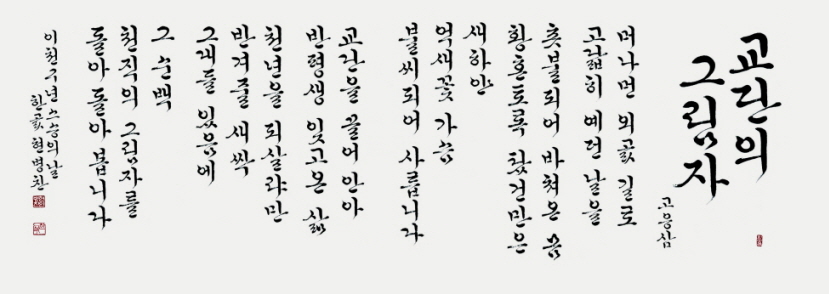 교단의
그림자
고응삼
머나먼 외곬 길로
고달피 예던 날을
촛불되어 바쳐온 몸
황혼토록 탔건만은
새하얀
억새꽃 가슴
불씨되어 사룹니다
교단을 끌어 안아
반평생 잊고 온 삶
천년을 되살랴만
반겨줄 새싹
그대들 있음에
그 순백
천직의 그림자를
돌아 돌아 봅니다
이천구년 스승의 날
한곬 현병찬